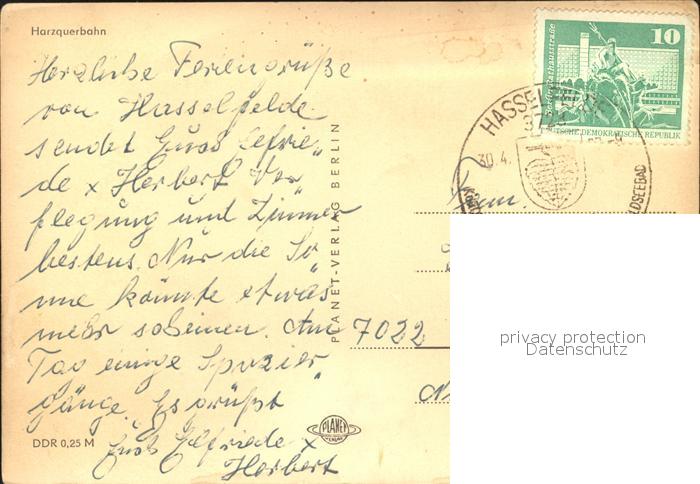 Harzquerbahn
Herzliche Feriengrüße
von Hasselfelde
sendet Euch Elfrie„
de x Herbert Ver„
pflegung und Zimmer
bestens. Nur die So„
nne könnte etwas
mehr scheinen. Am
Tag einige Spazier„
gänge. Es grüßt
Euch Elfriede x
Herbert
DDR 0,25 M
PLANET-VERLAG BERLIN
PLANET
10
DEUTSCHE DEMOKRATISCHE REPUBLIK
HASSELFELDE
30.4.
Fam.
7022
privacy protection
Datenschutz